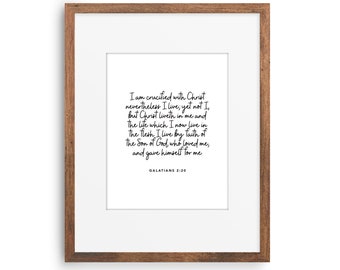 I am crucified with Christ
nevertheless I live, yet not I,
but Christ liveth in me and
the life which I now live in
the flesh I live by faith of
the Son of God, who loved me,
and gave himself for me
GALATIANS 2:20